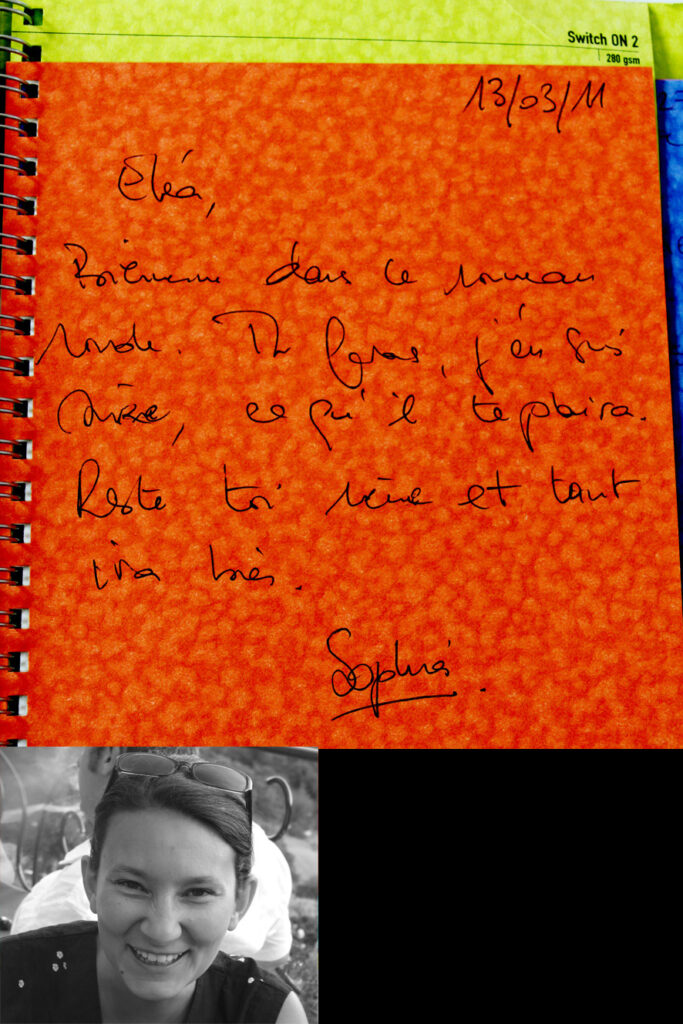 Switch ON 2
280 gsm
13/03/11
Eléa,
Bienvenue dans ce nouveau
monde. Tu feras, j'en suis
sûre, ce qu'il te plaira.
Reste toi même et tout
ira bien.